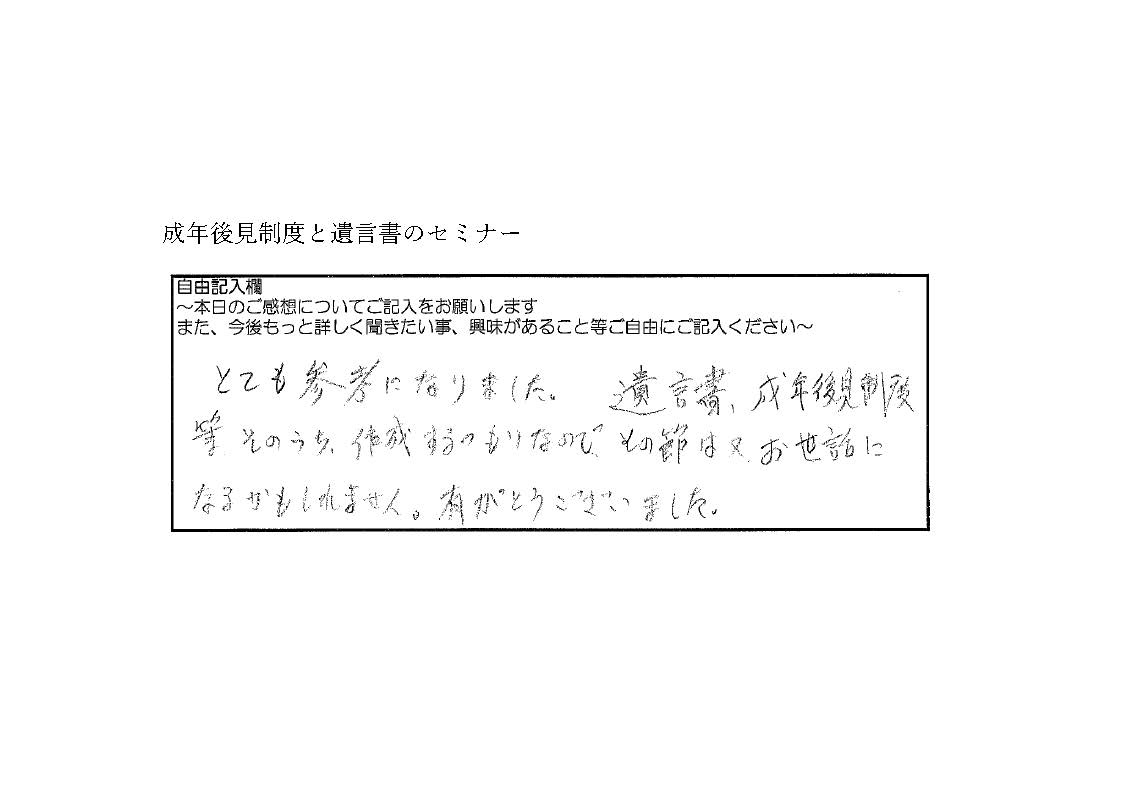 成年後見制度と遺言書のセミナー
自由記入欄
～本日のご感想についてご記入をお願いします
また、今後もっと詳しく聞きたい事、興味があること等ご自由にご記入ください～
とても参考になりました。 遺言書、成年後見制度
等 そのうち、作成するつもりなので、その節は又 お世話に
なるかもしれません。有がとうございました。